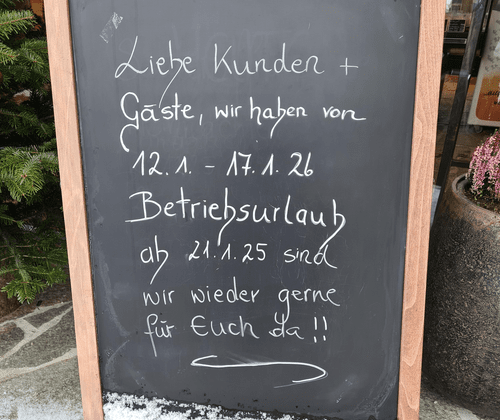 Liebe Kunden +
Gäste, wir haben von
12.1. - 17.1.26
Betriebsurlaub
ab 21.1.25 sind
wir wieder gerne
für Euch da!!